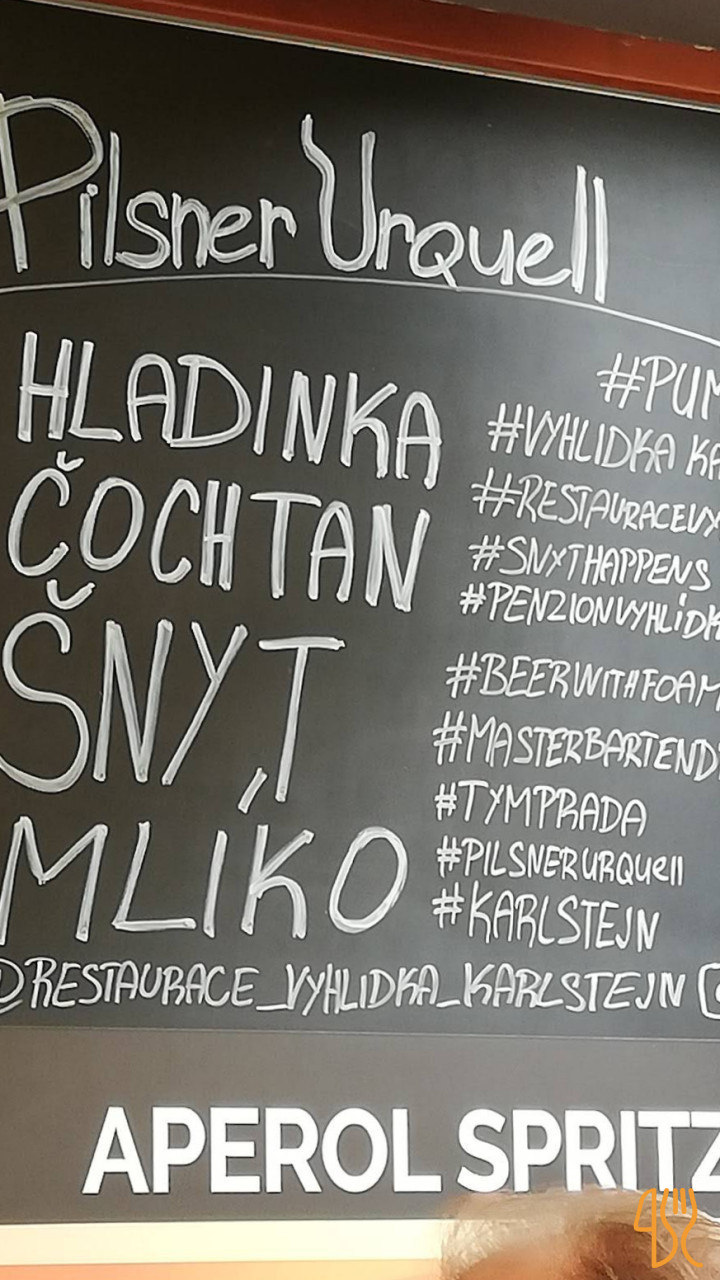 Pilsner Urquell
HLADINKA
ČOCHTAN
ŠNYT
MLÍKO
#PUM
#VYHLIDKA KA
#RESTAURACEVY
#SNYTHAPPENS
#PENZIONVYHLiDK
#BEERWITHFOAM
#MASTERBARTEND
#TYMPRADA
#PILSNERURQuell
#KARLSTEJN
@RESTAURACE_VYHLIDKA_KARLSTEJN
APEROL SPRITZ